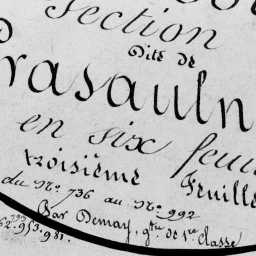 Section
Dite de
Prasauln
en six feui
troisième feuille
du N°. 736 au N°. 992
Par Demay, g.tre de 1re classe
953. 981.